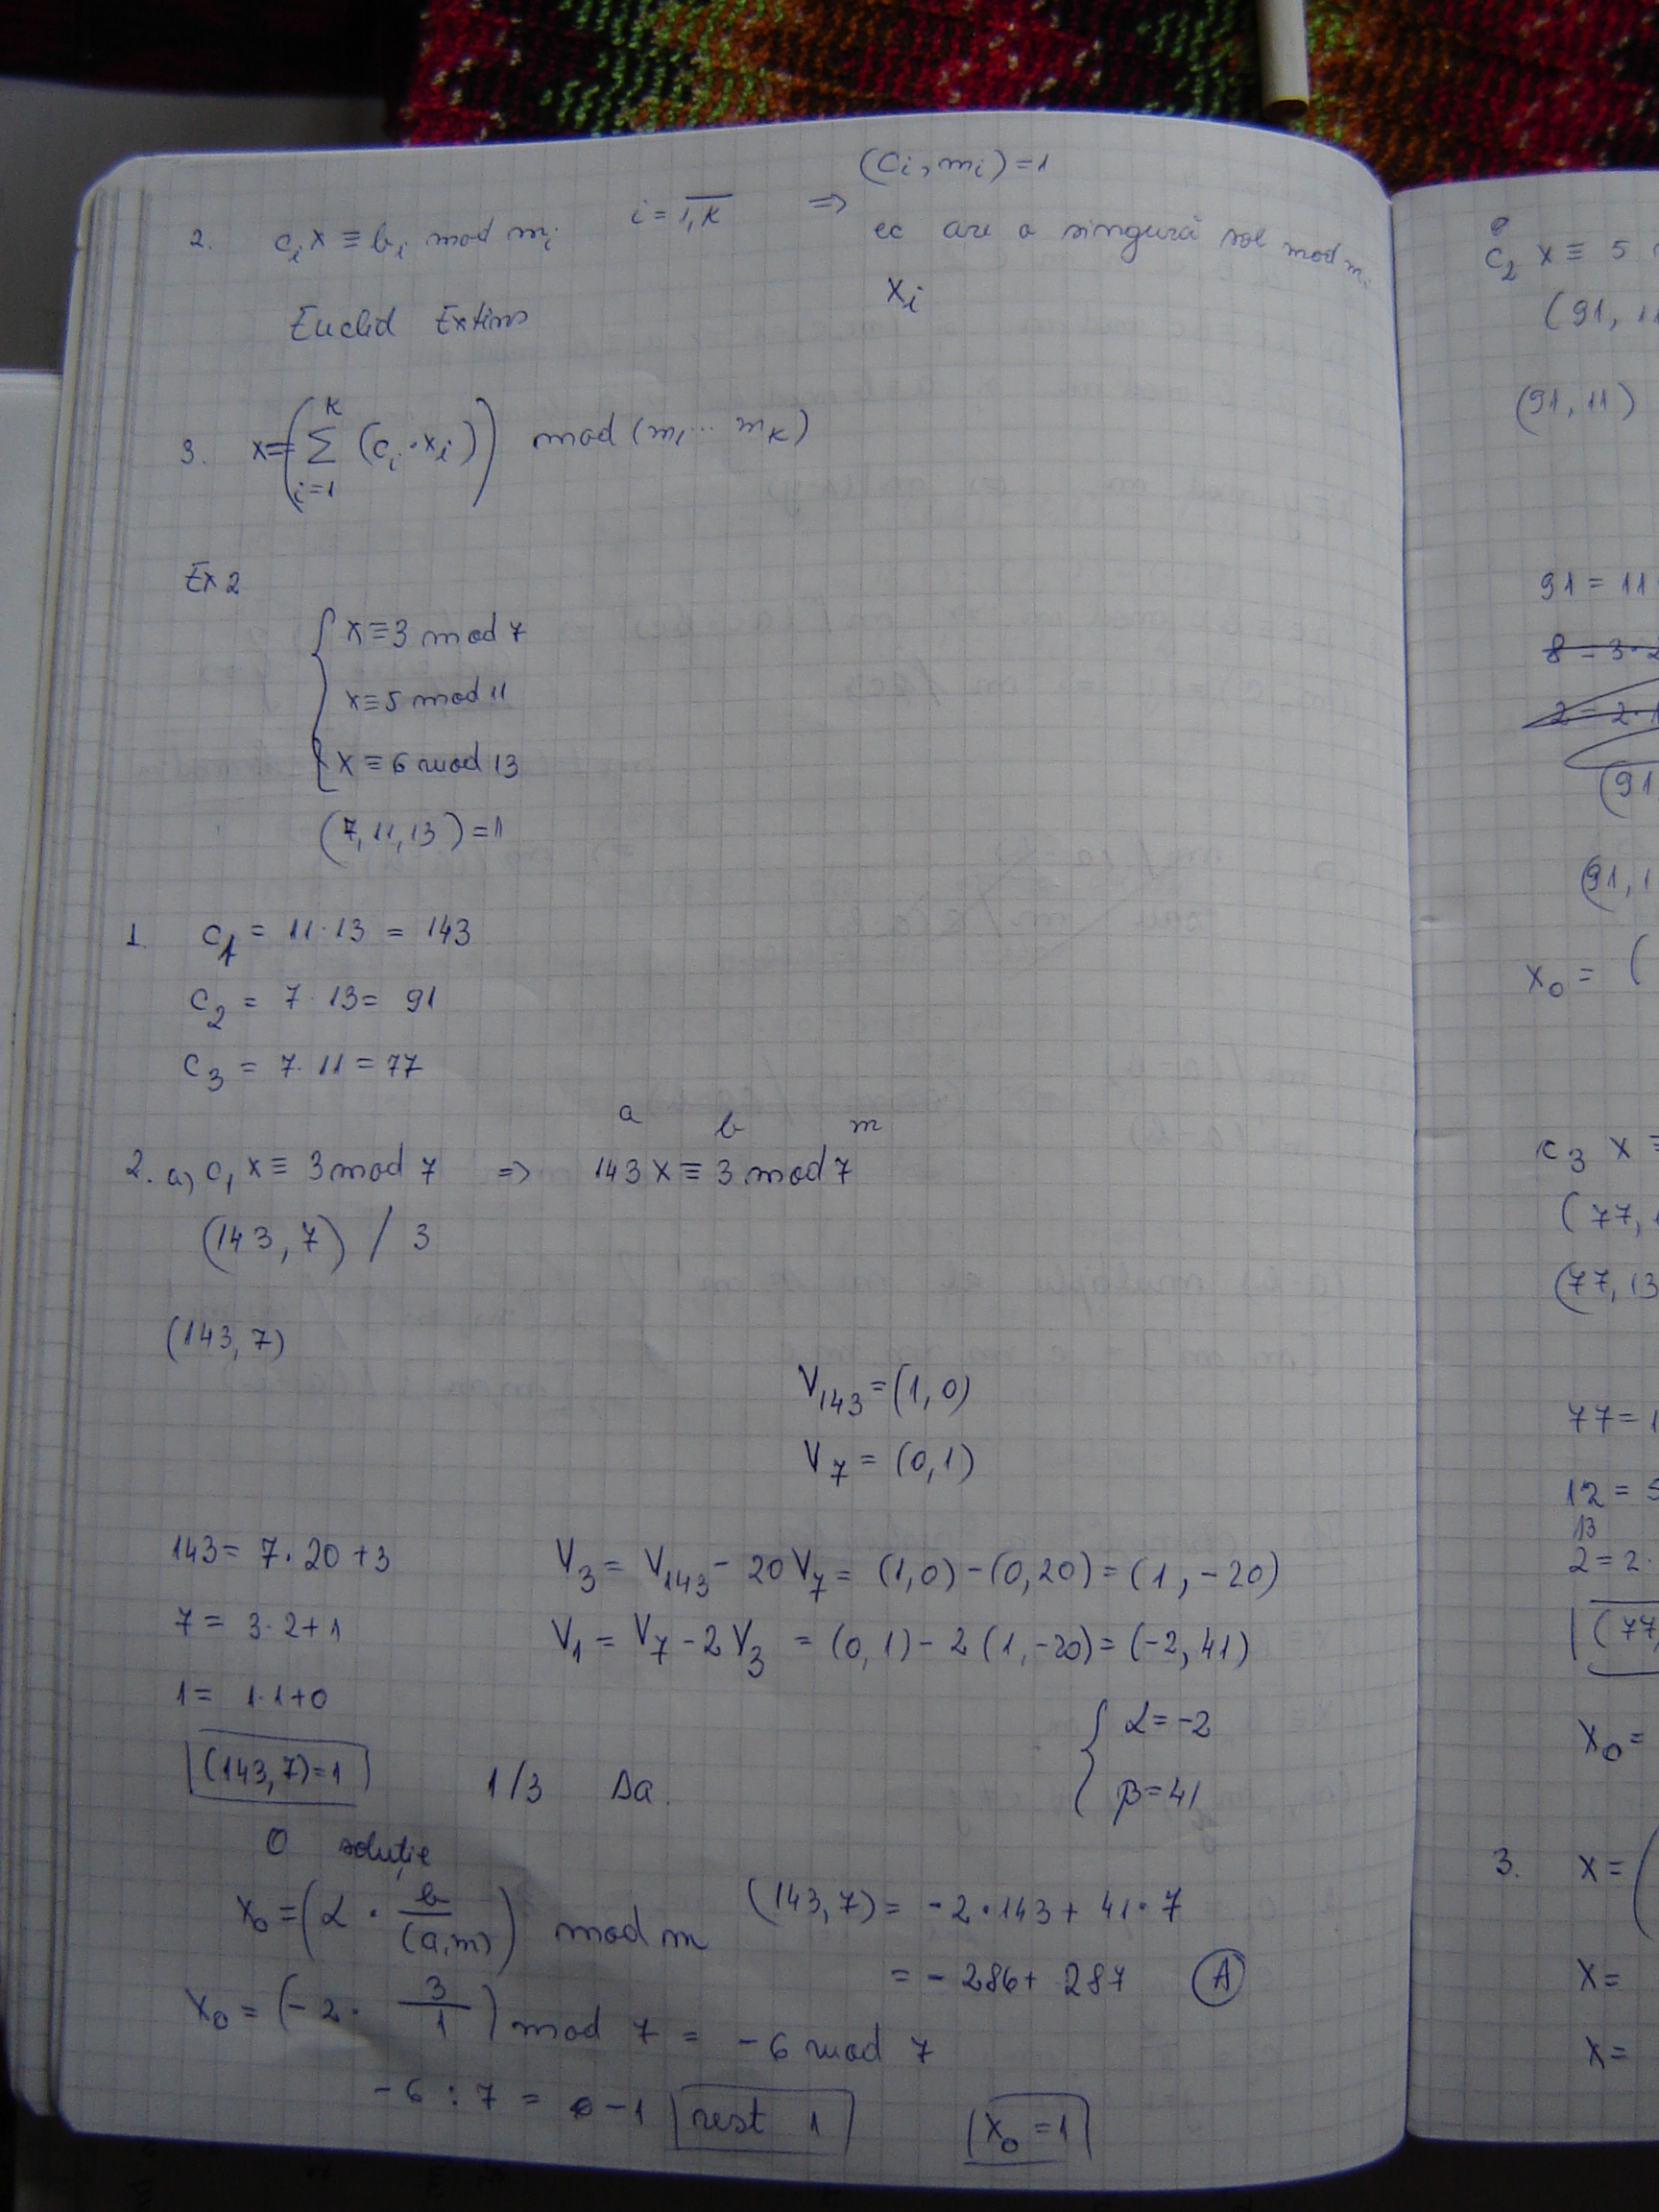 (cᵢ, mᵢ) = 1
2. cᵢ x ≡ bᵢ mod mᵢ i = 1,k ⇒
ec are o singură sol mod mᵢ
xᵢ
Euclid Extins
3. x = (∑ᵢ₌₁ᵏ (cᵢ · xᵢ)) mod (m₁ ... mₖ)
Ex 2
{ x ≡ 3 mod 7
x ≡ 5 mod 11
x ≡ 6 mod 13
(7, 11, 13) = 1
1. c₁ = 11 · 13 = 143
c₂ = 7 · 13 = 91
c₃ = 7 · 11 = 77
a b m
2. a) c₁ x ≡ 3 mod 7 ⇒ 143 x ≡ 3 mod 7
(143, 7) / 3
(143, 7)
V₁₄₃ = (1, 0)
V₇ = (0, 1)
143 = 7 · 20 + 3 V₃ = V₁₄₃ - 20 V₇ = (1, 0) - (0, 20) = (1, -20)
7 = 3 · 2 + 1 V₁ = V₇ - 2 V₃ = (0, 1) - 2 (1, -20) = (-2, 41)
1 = 1 · 1 + 0
{ α = -2
β = 41
(143, 7) = 1 1/3 Da.
O soluție
x₀ = (α · b/(a, m)) mod m
(143, 7) = -2 · 143 + 41 · 7
= -286 + 287 (A)
x₀ = (-2 · 3/1) mod 7 = -6 mod 7
-6 : 7 = -1 rest 1 x₀ = 1
c₂ x ≡ 5
(91, 11
(91, 11)
91 = 11
8 = 3 · 2
2 = 2 · 1
(91,
(91, 1
x₀ = (
c₃ x ≡
(77,
(77, 13
77 = 1
12 = 5
13
2 = 2 ·
(77,
x₀ =
3. x = (
x =
x =